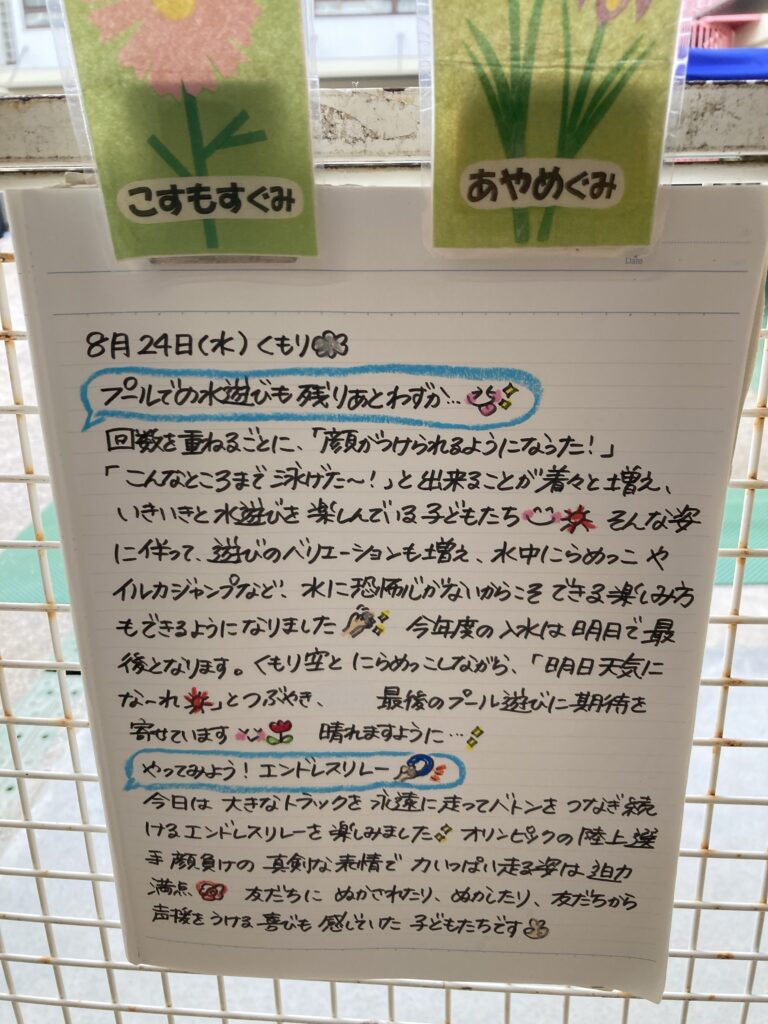 こすもすぐみ
あやめぐみ
Date
8月24日(水)くもり
プールでの水遊びも残りあとわずか…
回数を重ねるごとに、「顔がつけられるようになった!」
「こんなところまで泳げた〜!」と出来ることが着々と増え、
いきいきと水遊びを楽しんでいる子どもたち そんな姿
に伴って、遊びのバリエーションも増え、水中にらめっこや
イルカジャンプなど、水に恐怖心がないからこそできる楽しみ方
もできるようになりました 今年度の入水は明日で最
後となります。くもり空とにらめっこしながら、「明日天気に
な〜れ」とつぶやき、 最後のプール遊びに期待を
寄せています 晴れますように…
やってみよう!エンドレスリレー
今日は大きなトラックを永遠に走ってバトンをつなぎ続
けるエンドレスリレーを楽しみました オリンピックの陸上選
手顔負けの真剣な表情で力いっぱい走る姿は迫力
満点 友だちにぬかされたり、ぬかしたり、友だちから
声援をうける喜びも感じていた子どもたちです